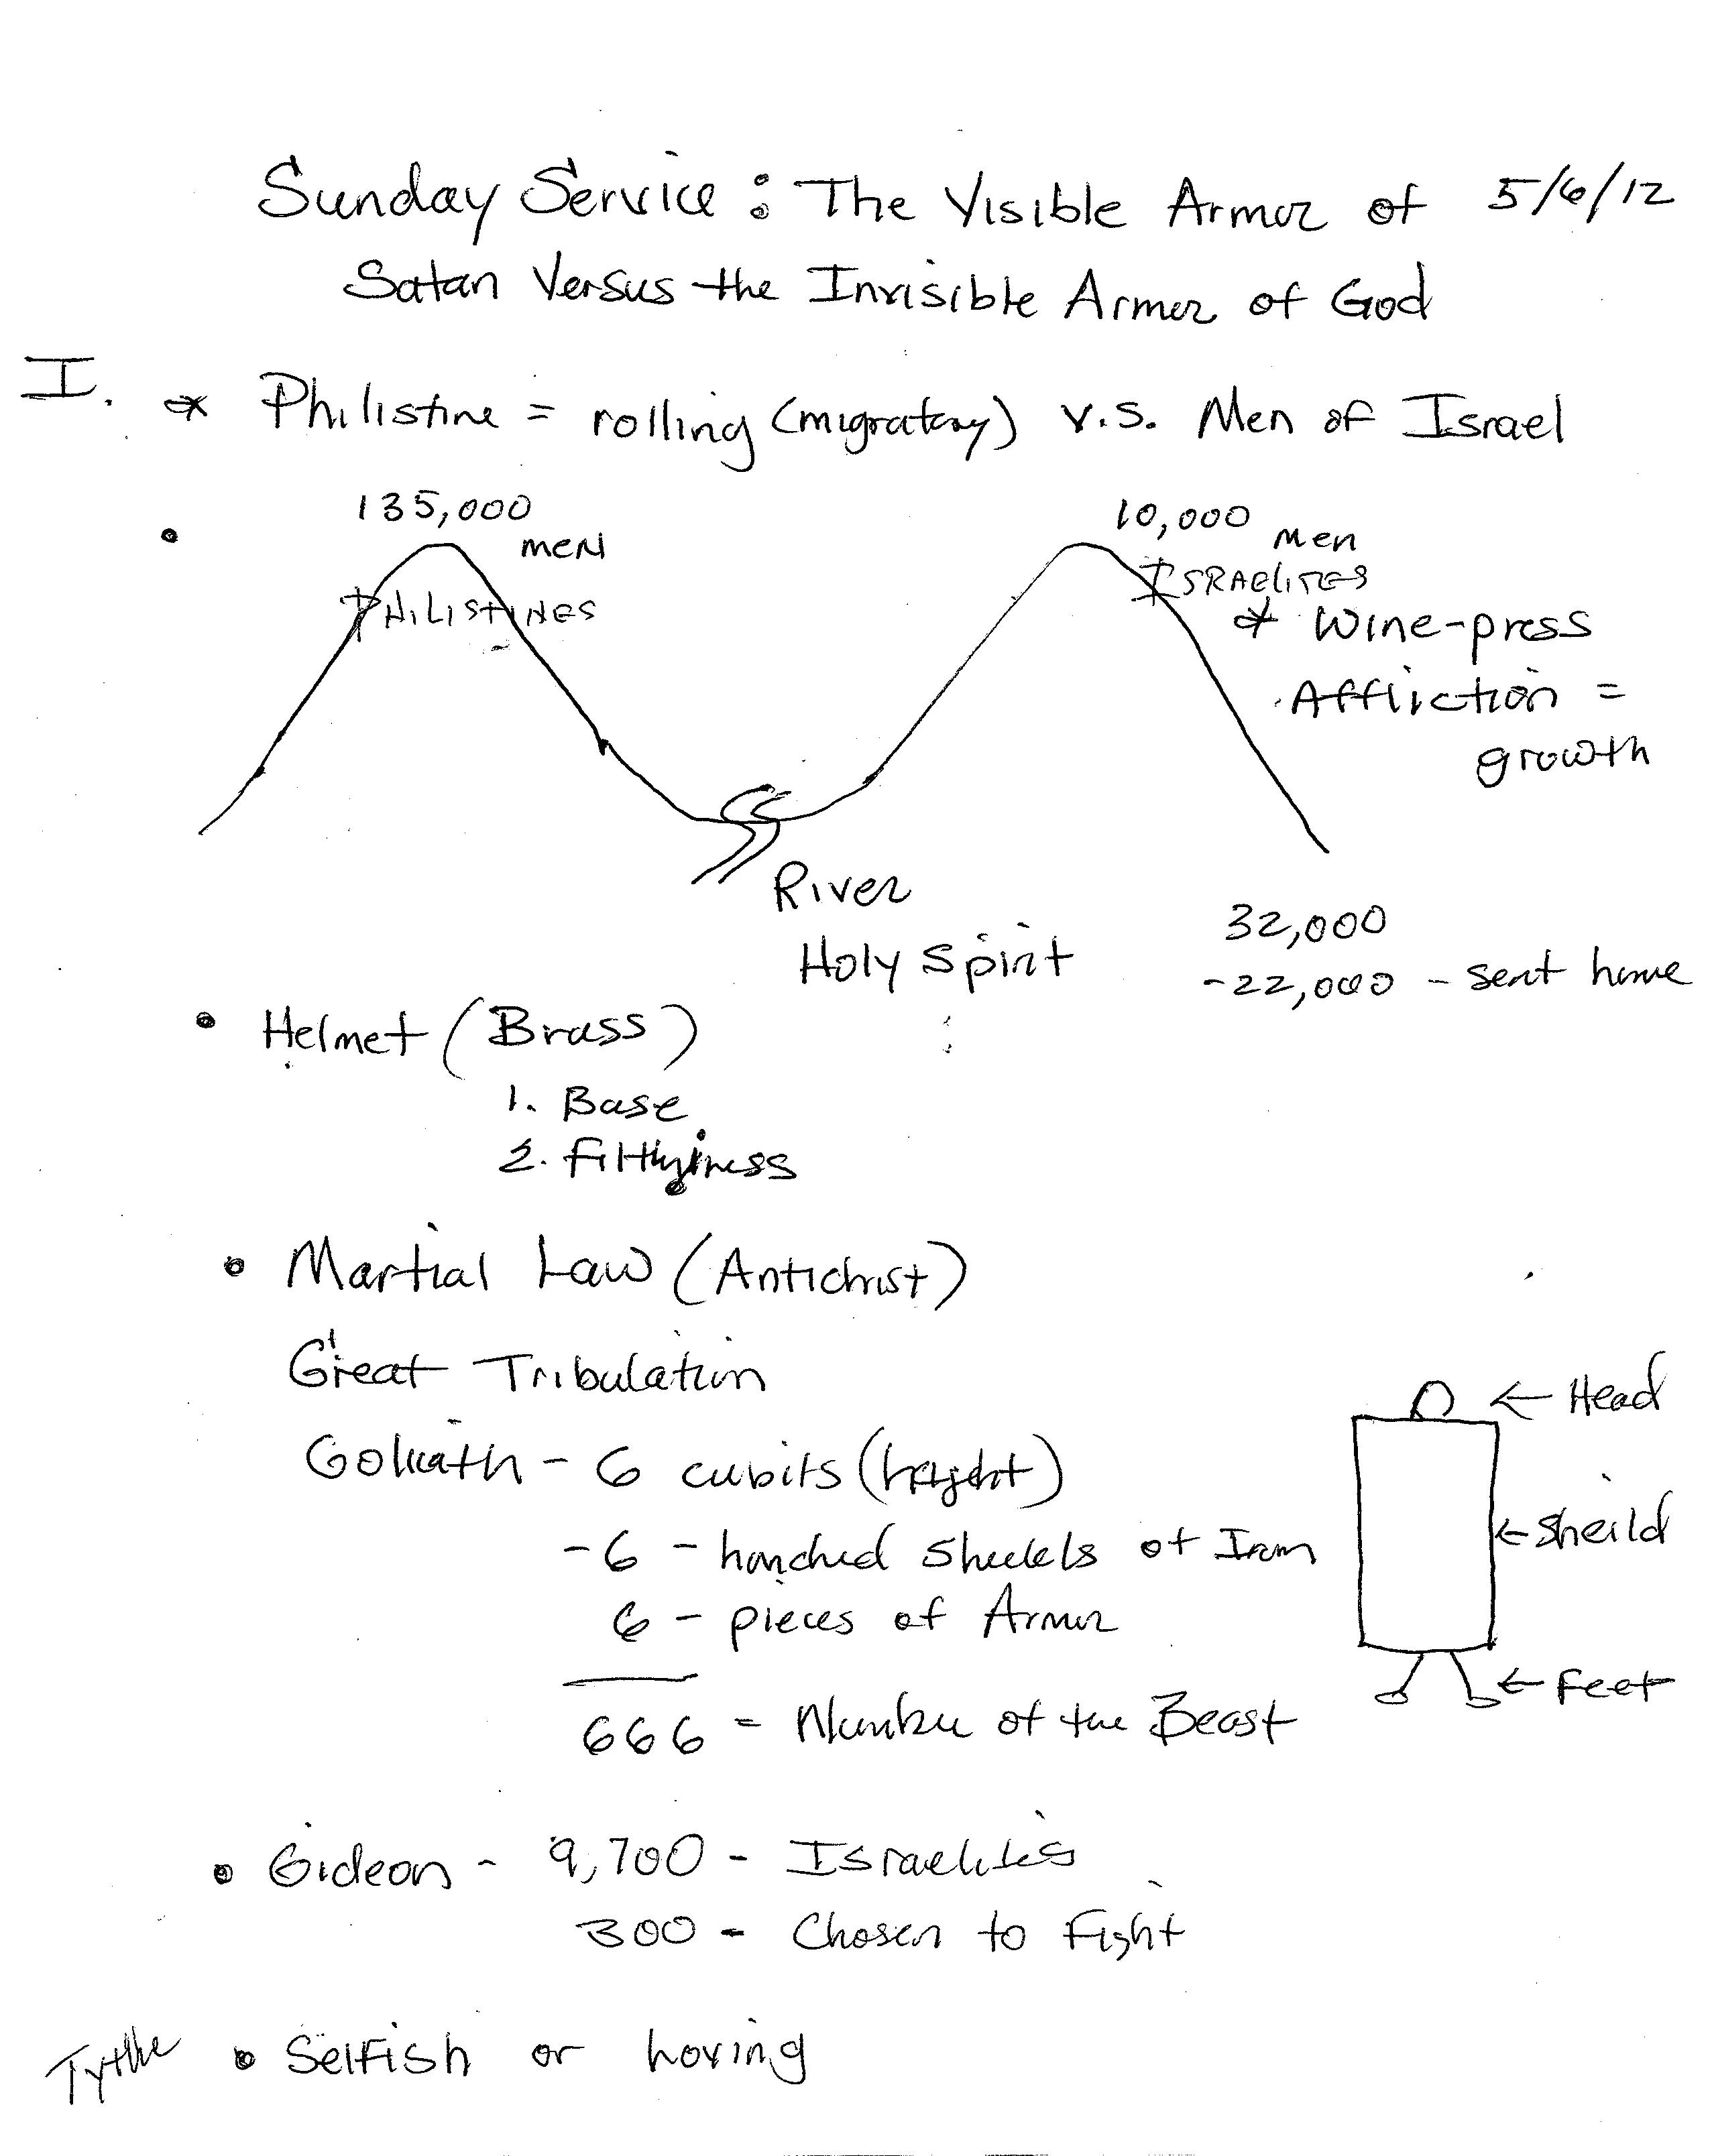 Sunday Service : The Visible Armor of 5/6/12
Satan Versus the Invisible Armor of God
I. * Philistine = rolling (migratory) v.s. Men of Israel
• 135,000 men
PHILISTINES
10,000 men
ISRAELITES
* Wine-press
Affliction =
growth
River
Holy Spirit
32,000
-22,000 - sent home
• Helmet (Brass)
1. Base
2. Filthyness
• Martial Law (Antichrist)
Great Tribulation
Goliath - 6 cubits (height)
- 6 - hundred Shekels of Iron
6 - pieces of Armor
666 = Number of the Beast
← Head
← Sheild
← Feet
• Gideon - 9,700 - Israelites
300 - Chosen to Fight
Tythe • Selfish or loving